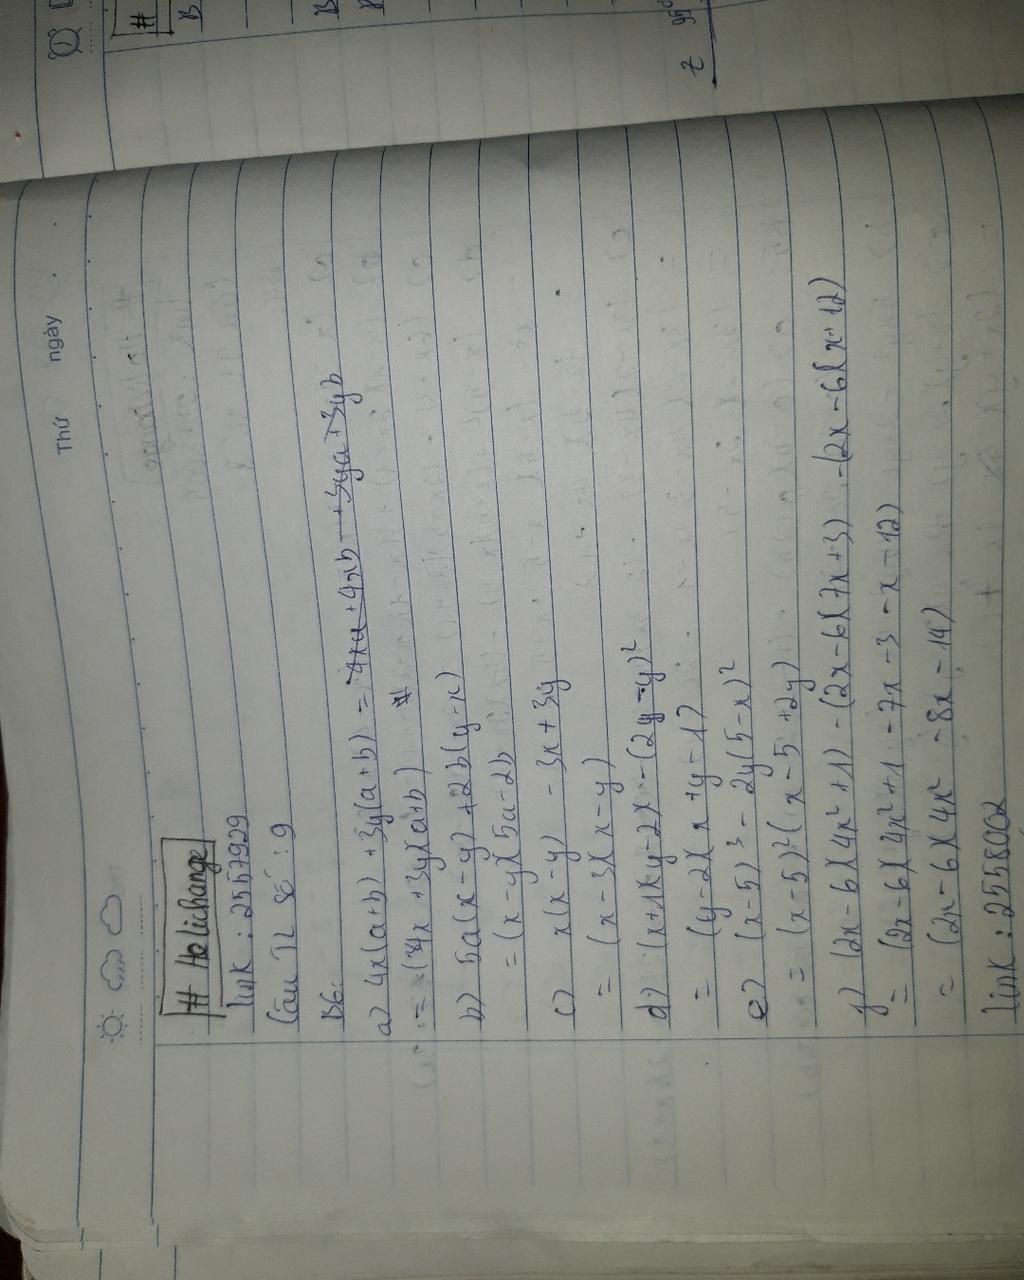 Thứ ngày
# Helichange
link : 2557929
Câu TL số : 9
B6:
a) 4x(a+b) + 3y(a+b) = 4xa + 4xb + 3ya + 3yb
= (4x + 3y)(a+b)
b) 5a(x-y) + 2b(y-x)
= (x-y)(5a-2b)
c) x(x-y) - 3x + 3y
= (x-3)(x-y)
d) (x+1)(y-2) - (2y-y)²
= (y-2)(x+y-1)
e) (x-5)³ - 2y(5-x)²
= (x-5)²(x-5+2y)
f) (2x-6)(4x²+1) - (2x-6)(7x+3) - (2x-6)(x-12)
= (2x-6)(4x²+1-7x-3-x-12)
= (2x-6)(4x²-8x-14)
link : 2558002